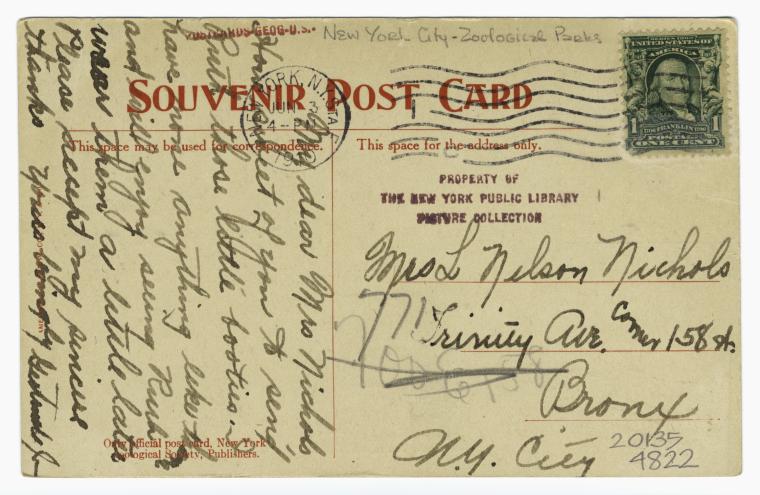 POSTCARDS-GEOG-U.S.-
New York City - Zoological Parks
SOUVENIR POST CARD
NEW YORK, N.Y. STA.
JUN 3
4-PM
UNITED STATES OF
AMERICA
1 FRANKLIN 1
POSTAGE
ONE CENT
This space may be used for correspondence.
This space for the address only.
PROPERTY OF
THE NEW YORK PUBLIC LIBRARY
PICTURE COLLECTION
My dear Mrs Nichols
How sweet of you to send
Ruth those little booties -
have none anything like it
and will enjoy seeing Ruth
wear them a little later
Please accept my sincere
thanks Yours lovingly Gertrude
Mrs L Nelson Nichols
771
Trinity Ave. Corner 158 St.
Bronx
N.Y. City
20135
4822
Only official post card, New York
Zoological Society, Publishers.